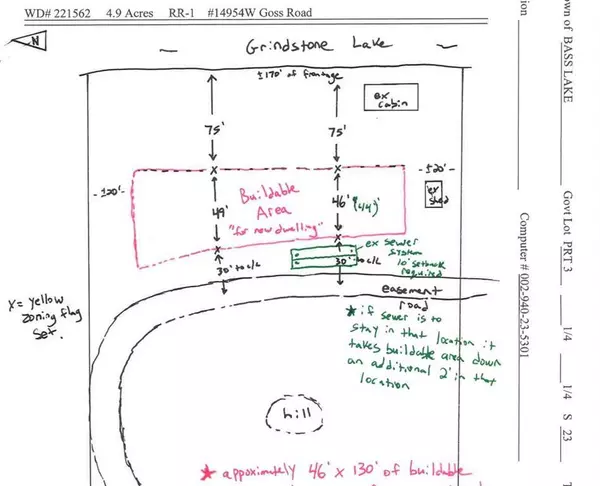 WD# 221562 4.9 Acres RR-1 #14954W Goss Road
N
Grindstone Lake
±170' of frontage
ex cabin
75'
75'
-120'-
-520'-
Buildable
Area
"for new dwelling"
49'
46'
(44')
ex shed
ex sewer
system
10' setback
required
30' to c/L
30' to c/L
easement
road
X = yellow
zoning flag
set.
* if sewer is to
stay in that location it
takes buildable area down
an additional 2' in that
location
hill
* appoximately 46' x 130' of buildable
own of BASS LAKE
Govt Lot PRT 3 1/4 1/4 S 23
Computer # 002-940-23-5301